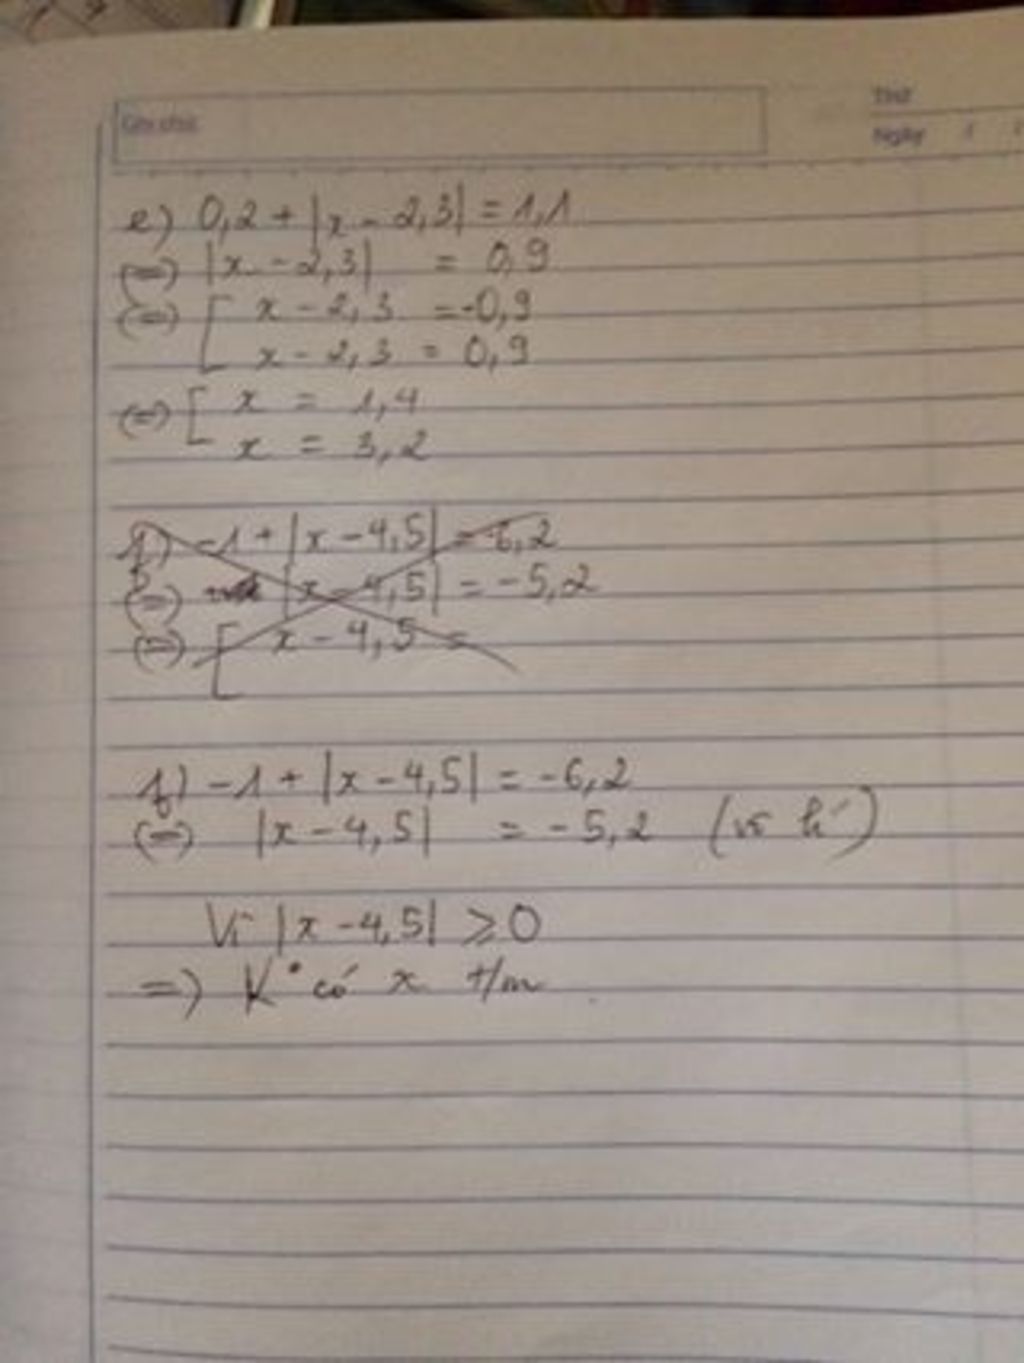 Ghi chú:
Thứ
Ngày / /
e) 0,2 + |x - 2,3| = 1,1
(=) |x - 2,3| = 0,9
(=) [ x - 2,3 = -0,9
x - 2,3 = 0,9
(=) [ x = 1,4
x = 3,2
f) -1 + |x - 4,5| = -6,2
(=) |x - 4,5| = -5,2
(=) [ x - 4,5 =
f) -1 + |x - 4,5| = -6,2
(=) |x - 4,5| = -5,2 (vô lí)
Vì |x - 4,5| ≥ 0
=) K° có x t/m